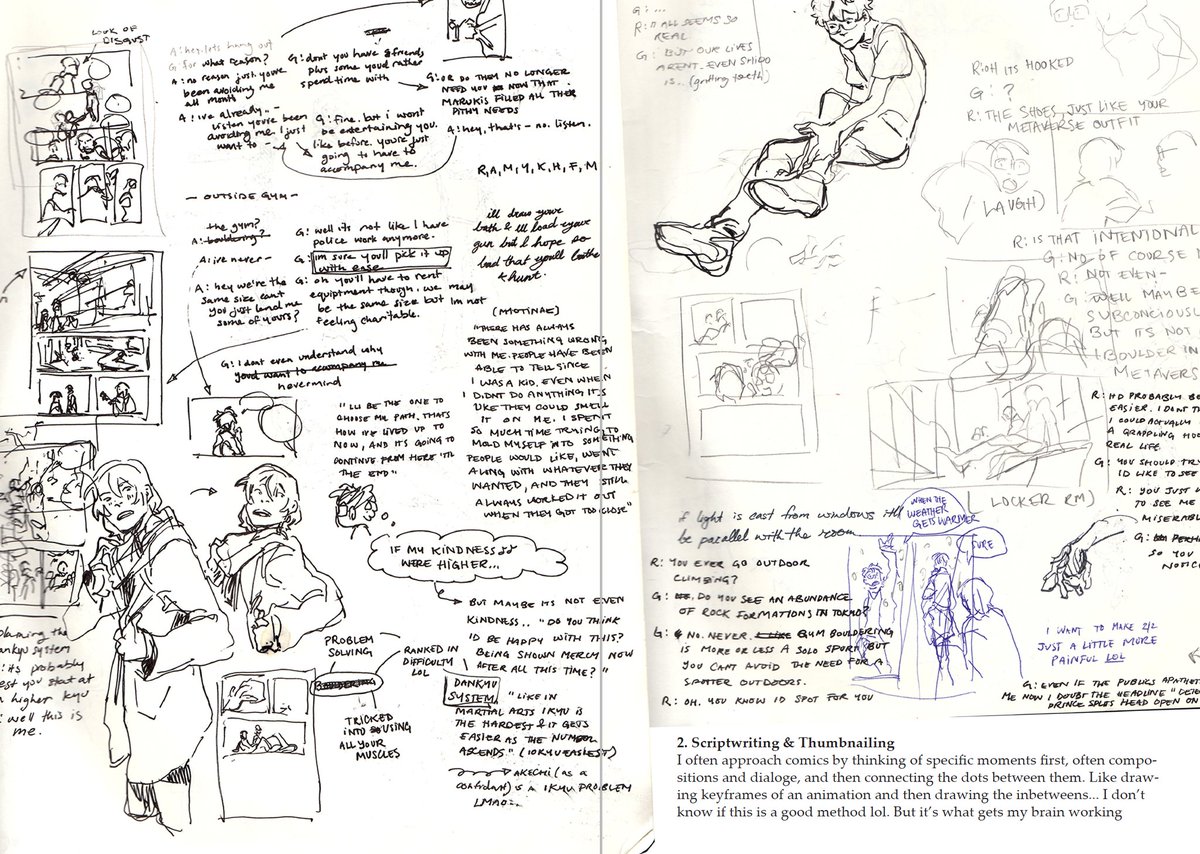 LOOK OF
DISGUST
A: hey. lets hang out
G: for what reason?
A: no reason just youve
been avoiding me
all month
A: ive already.. -
Listen you've been
avoiding me. I just
want to -
G: dont you have friends,
plus some youd rather
spend time with
G: fine. but i wont
be entertaining you.
like before. you're just
going to have to
accompany me.
G: OR DO THEY NO LONGER
NEED YOU NOW THAT
MARUKIS FILLED ALL THER
PITHY NEEDS
A: hey, that's - no. listen.
R, A, M, Y, K, H, F, M
- OUTSIDE GYM -
the gym?
A: bouldering?
A: ive never -
A: hey we're the
same size cant
you just lend me
some of yours?
G: well its not like I have
police work anymore.
G: im sure youll pick it up
with ease
G: oh you'll have to rent
equiptment though. we may
be the same size but im not
feeling charitable.
G: I dont even understand why
youd want to accompany me
nevermind
ill draw your
bath & ill load your
gun but I hope so
bad that youll bathe
& hunt.
(MOTINAE)
"THERE HAS ALWAYS
BEEN SOMETHING WRONG
WITH ME. PEOPLE HAVE BEEN
ABLE TO TELL SINCE
I WAS A KID. EVEN WHEN
I DIDNT DO ANYTHING ITS
LIKE THEY COULD SMELL
IT ON ME. I SPENT
SO MUCH TIME TRYING TO
MOLD MYSELF INTO SOMETHING
PEOPLE WOULD LIKE, WENT
ALONG WITH WHATEVER THEY
WANTED, AND THEY STILL
ALWAYS WORKED IT OUT
WHEN THEY GOT TOO CLOSE"
"ILL BE THE ONE TO
CHOOSE MY PATH. THATS
HOW IVE LIVED UP TO
NOW, AND ITS GOING TO
CONTINUE FROM HERE 'TIL
THE END"
IF MY KINDNESS
WERE HIGHER...
BUT MAYBE ITS NOT EVEN
KINDNESS.. "DO YOU THINK
ID BE HAPPY WITH THIS?
BEING SHOWN MERCY NOW
AFTER ALL THIS TIME?"
PROBLEM
SOLVING
BOULDERING
TRICKED
INTO USING
ALL YOUR
MUSCLES
RANKED IN
DIFFICULTY
LOL
DANKYU
SYSTEM
"LIKE IN
MARTIAL ARTS 1KYU IS
THE HARDEST & IT GETS
EASIER AS THE NUMBER
ASCENDS" (10KYU EASIEST)
AKECHI (as a
confidant) is a 1KYU PROBLEM
LMAO
planning the
system
: its probably
you start at
higher kyu
: well this is
me.
G: ...
R: IT ALL SEEMS SO
REAL
G: BUT OUR LIVES
ARENT. EVEN SHIDO
IS... (gritting teeth)
R: OH ITS HOOKED
G: ?
R: THE SHOES, JUST LIKE YOUR
METAVERSE OUTFIT
LAUGH)
R: IS THAT INTENIONAL
G: NO OF COURSE
R: NOT EVEN -
G: WELL MAYBE
SUBCONCIOUSLY
BUT ITS NOT
I BOULDER IN
METAVERS
R: ID PROBABLY BE
EASIER. I DONT
I COULD ACTUALLY
A GRAPPLING HOO
REAL LIFE.
G: YOU SHOULD TRY
ID LIKE TO SEE
R: YOU JUST
TO SEE ME
MISERABLE
G: PERH
SO YOU
NOTIC
( LOCKER RM)
if light is cast from windows itll
be parallel with the room
WHEN THE
WEATHER
GETS WARMER
SURE
R: YOU EVER GO OUTDOOR
CLIMBING?
G: DO YOU SEE AN ABUNDANCE
OF ROCK FORMATIONS IN TOKYO?
G: NO. NEVER. GYM BOULDERING
IS MORE OR LESS A SOLO SPORT BUT
YOU CANT AVOID THE NEED FOR A
SPOTTER OUTDOORS.
R: OH. YOU KNOW ID SPOT FOR YOU
I WANT TO MAKE 2/2
JUST A LITTLE MORE
PAINFUL LOL
G: EVEN IF THE PUBLICS APATHET
ME NOW I DOUBT THE HEADLINE "DETE
PRINCE SPLITS HEAD OPEN ON
2. Scriptwriting & Thumbnailing
I often approach comics by thinking of specific moments first, often compo-
sitions and dialoge, and then connecting the dots between them. Like draw-
ing keyframes of an animation and then drawing the inbetweens... I don't
know if this is a good method lol. But it's what gets my brain working